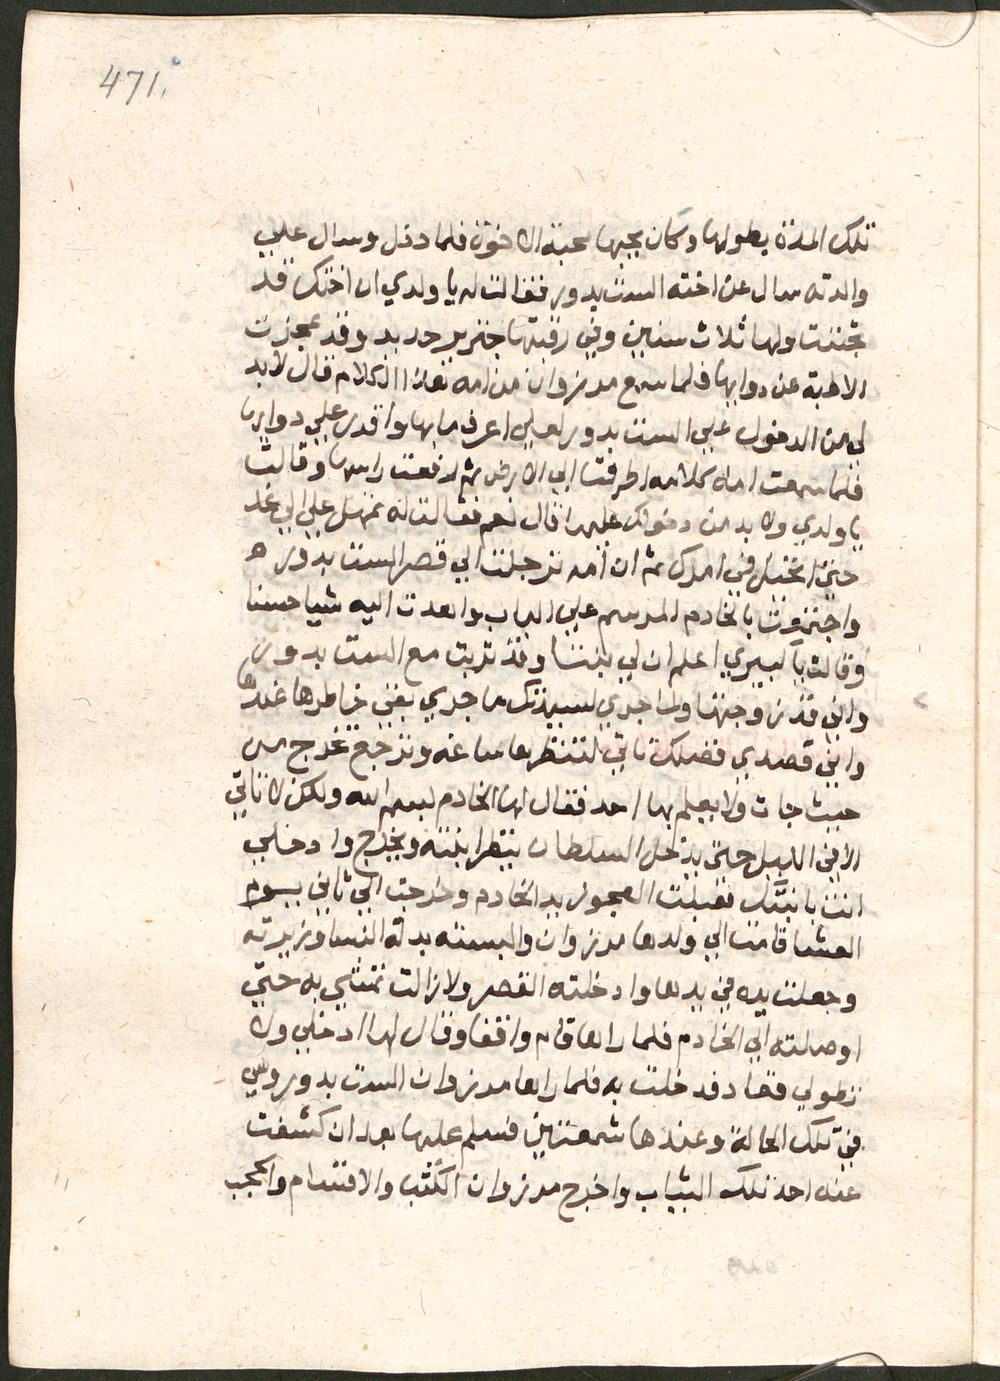 471.
تلك المدة بطولها وكان يحبها محبة الاخوة فلما دخل وسال علي
والدته سال عن اخته الست بدور فقالت له يا ولدي ان اختك قد
تجننت ولها ثلاث سنين وفي رقبتها جنزير حديد وقد عجزت
الاطبة عن دوايها فلما سمع مرزوان من امه هذا الكلام قال لابد
لي من الدخول علي الست بدور لعلي اعرف ما بها واقدر علي دوايها
فلما سمعت امه كلامه اطرقت الي الارض ثم رفعت راسها وقالت
يا ولدي ولا بد من دخولك عليها قال نعم فقالت له تمهل علي الي غد
حتي اتحيل في امرك ثم ان امه ترجلت الي قصر الست بدور
واجتمعت بالخادم المرسم علي الباب واهدت اليه شيا حسنا
وقالت يا كبيري اعلم ان لي بنتا وقد تربت مع الست بدور
واني قد زوجتها ولما جري لسيدتك ما جري بقي خاطرها عندها
واني قصدي فضلك تاتي لتنظرها ساعة وترجع تخرج من
حيث جات ولا يعلم بها احد فقال لها الخادم بسم الله ولكن لا تاتي
الا في الليل حتي يدخل السلطان ينظر ابنته ويخرج وادخلي
انت بابنتك فقبلت العجوز يد الخادم وخرجت الي ثاني يوم
العشا قامت الي ولدها مرزوان والبسته بدلة النسا وزيرته
وجعلت يده في يدها وادخلته القصر ولا زالت تمشي به حتي
اوصلته الي الخادم فلما راها قام واقفا وقال لها ادخلي ولا
تطولي قعاد فدخلت به فلما راها مرزوان الست بدور وهي
في تلك الحالة وعندها شمعتين فسلم عليها بعد ان كشفت
عنه احد تلك الثياب واخرج مرزوان الكتب والاقسام والحجب